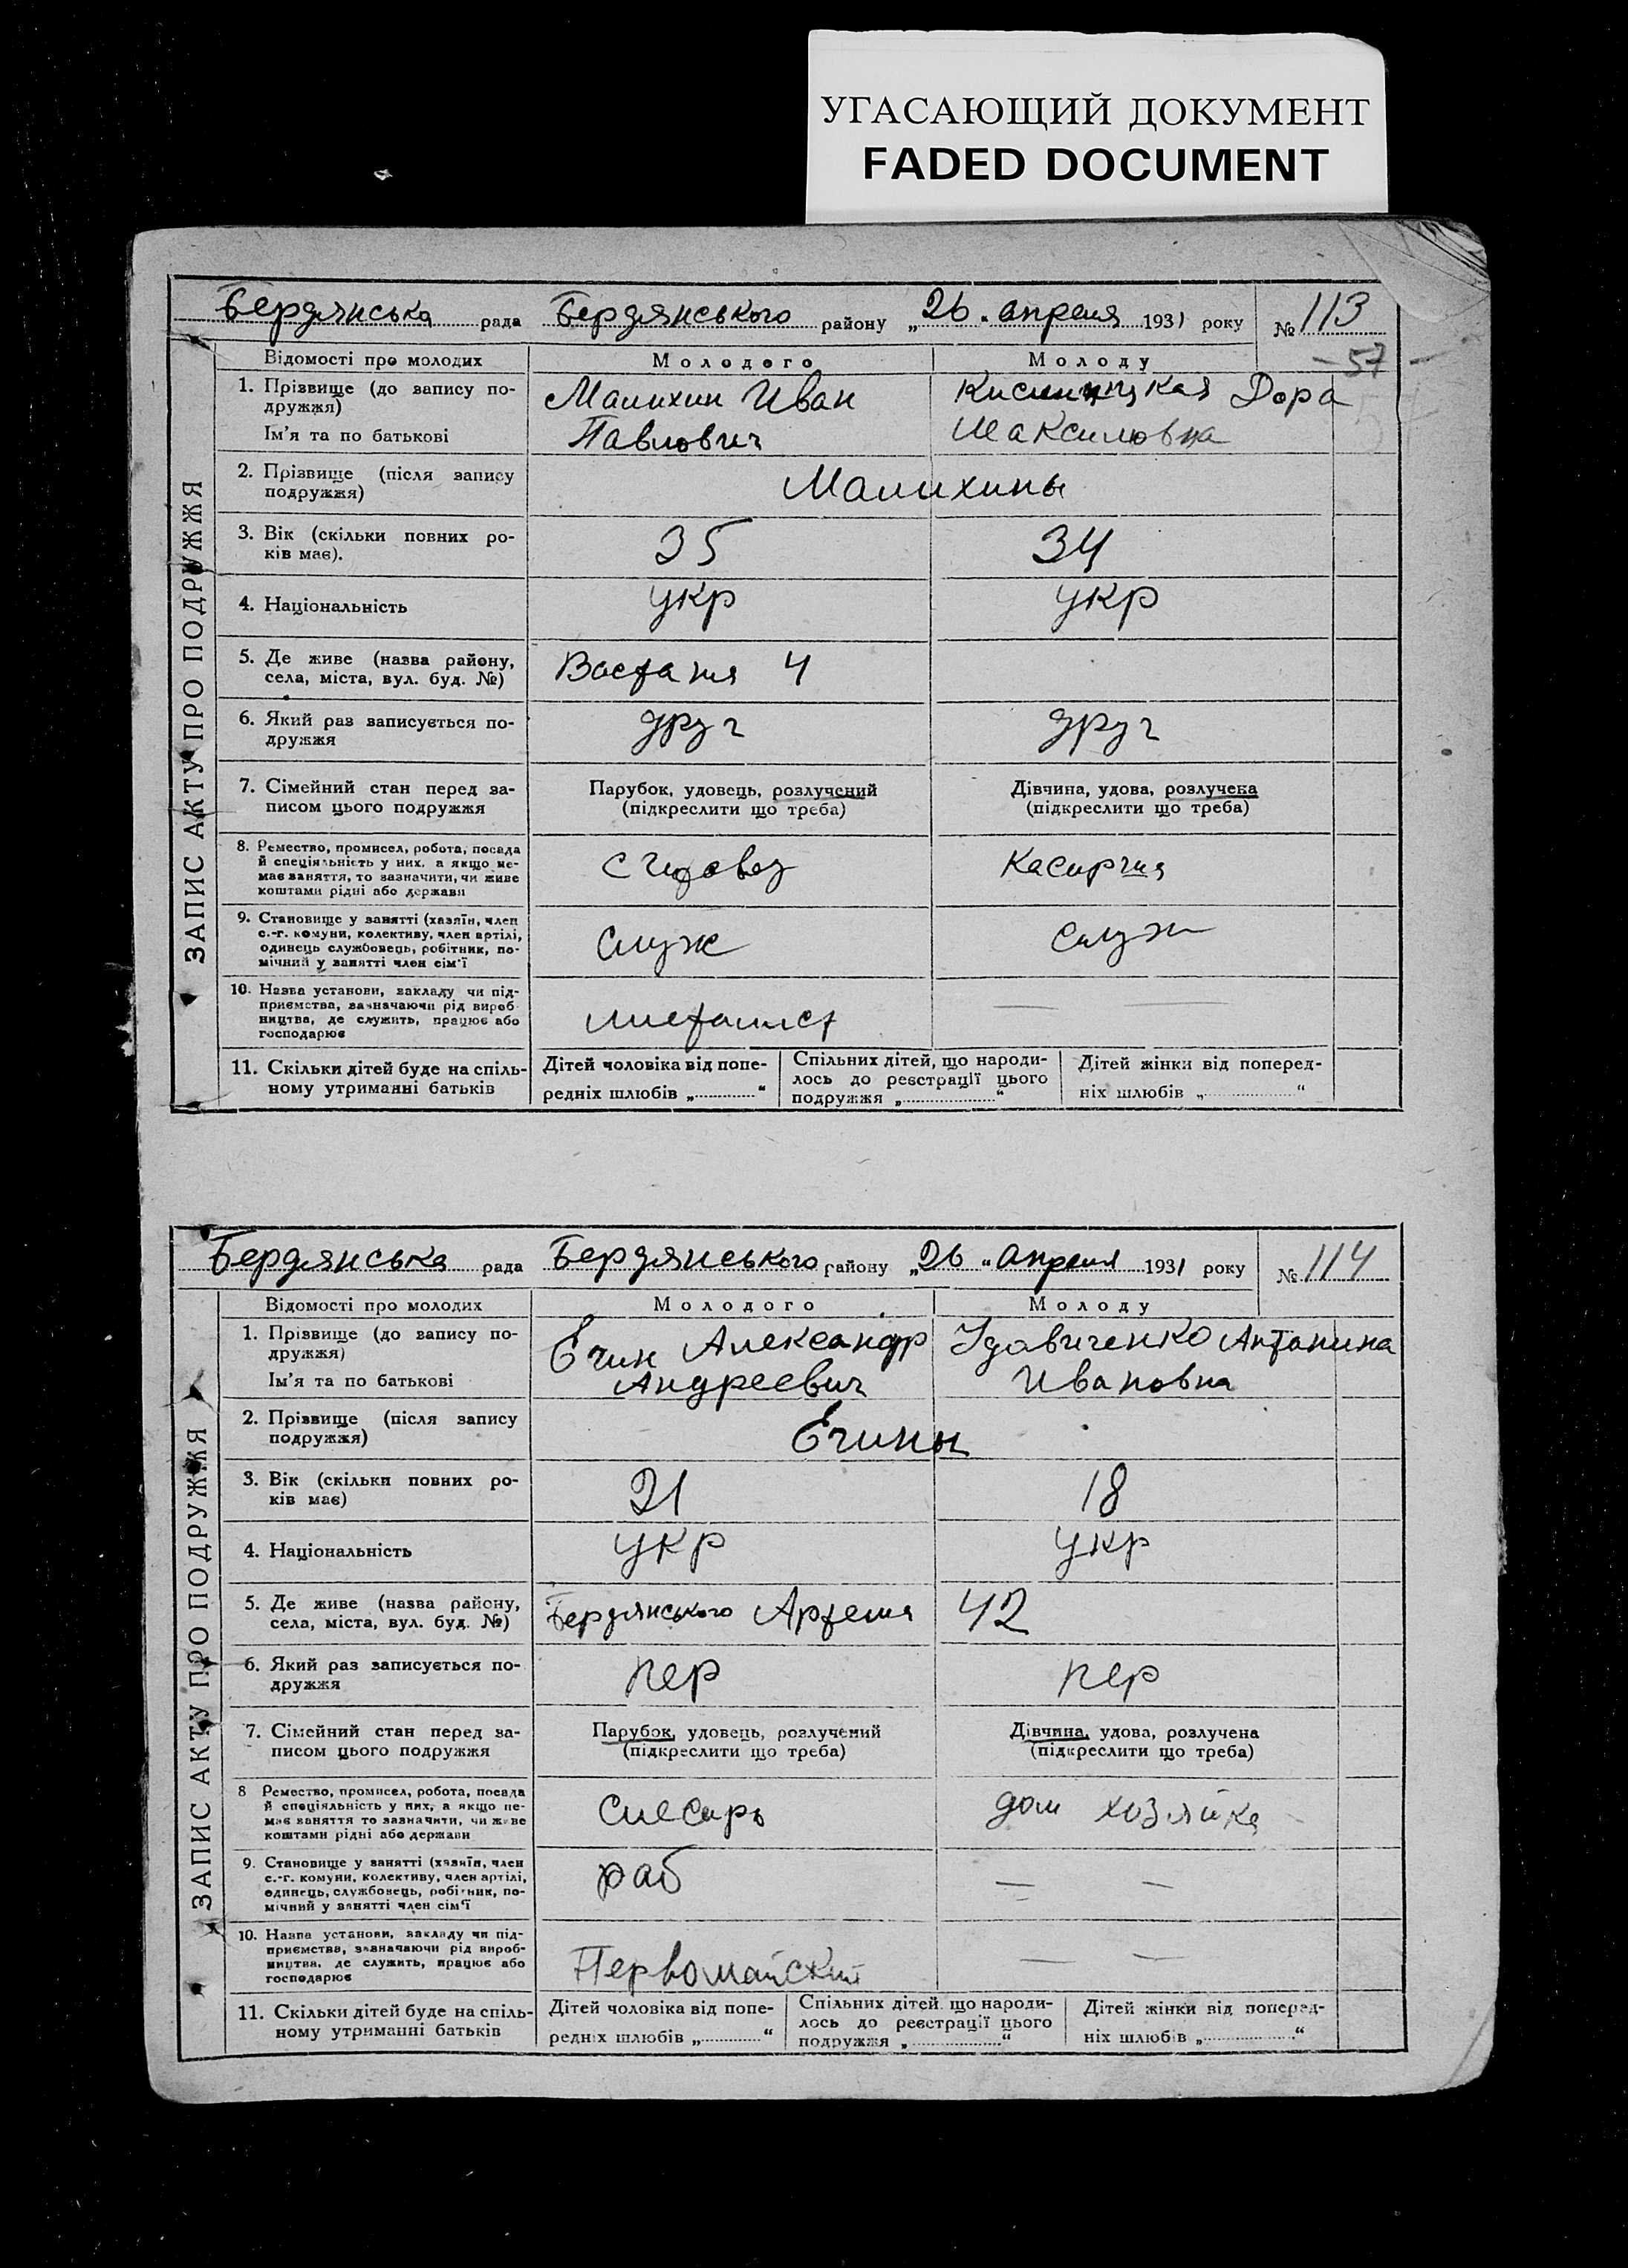 УГАСАЮЩИЙ ДОКУМЕНТ
FADED DOCUMENT
Бердянська рада Бердянського району „26" апреля 1931 року № 113
– 57 –
Відомості про молодих Молодого Молоду
ЗАПИС АКТУ ПРО ПОДРУЖЖЯ
1. Прізвище (до запису по-
дружжя)
Ім'я та по батькові
Малихин Иван
Павлович
Дора
Максимовна
2. Прізвище (після запису
подружжя)
Малихины
3. Вік (скільки повних ро-
ків має).
35 34
4. Національність
укр укр
5. Де живе (назва району,
села, міста, вул. буд. №)
Востания 4
6. Який раз записується по-
дружжя
друг друг
7. Сімейний стан перед за-
писом цього подружжя
Парубок, удовець, розлучений
(підкреслити що треба)
Дівчина, удова, розлучена
(підкреслити що треба)
8. Ремество, промисел, робота, посада
й спеціяльність у них, а якщо не-
має заняття, то зазначити, чи живе
коштами рідні або держави
счетовод касирчия
9. Становище у занятті (хазяїн, член
с.-г. комуни, колективу, член артілі,
одинець службовець, робітник, по-
мічний у занятті член сім'ї
служ служ
10. Назва установи, закладу чи під-
приємства, зазначаючи рід вироб-
ництва, де служить, працює або
господарює
металист — —
11. Скільки дітей буде на спіль-
ному утриманні батьків
Дітей чоловіка від попе-
редніх шлюбів „ “
Спільних дітей, що народи-
лось до реєстрації цього
подружжя „ “
Дітей жінки від поперед-
ніх шлюбів „ “
Бердянська рада Бердянського району „26" апреля 1931 року № 114
Відомості про молодих Молодого Молоду
ЗАПИС АКТУ ПРО ПОДРУЖЖЯ
1. Прізвище (до запису по-
дружжя)
Ім'я та по батькові
Ечин Александр
Андреевич
Удовиченко Антонина
Ивановна
2. Прізвище (після запису
подружжя)
Ечины
3. Вік (скільки повних ро-
ків має)
21 18
4. Національність
укр укр
5. Де живе (назва району,
села, міста, вул. буд. №)
Бердянського Артема 42
6. Який раз записується по-
дружжя
пер пер
7. Сімейний стан перед за-
писом цього подружжя
Парубок, удовець, розлучений
(підкреслити що треба)
Дівчина, удова, розлучена
(підкреслити що треба)
8 Ремество, промисел, робота, посада
й спеціяльність у них, а якщо не-
має заняття то зазначити, чи живе
коштами рідні або держави
слесарь дом хозяйка
9. Становище у занятті (хазяїн, член
с.-г. комуни, колективу, член артілі,
одинець, службовець, робітник, по-
мічний у занятті член сім'ї
раб — —
10. Назва установи, закладу чи під-
приємства, зазначаючи рід вироб-
ництва, де служить, працює або
господарює
Первомайский — —
11. Скільки дітей буде на спіль-
ному утриманні батьків
Дітей чоловіка від попе-
редніх шлюбів „ “
Спільних дітей, що народи-
лось до реєстрації цього
подружжя „ “
Дітей жінки від поперед-
ніх шлюбів „ “